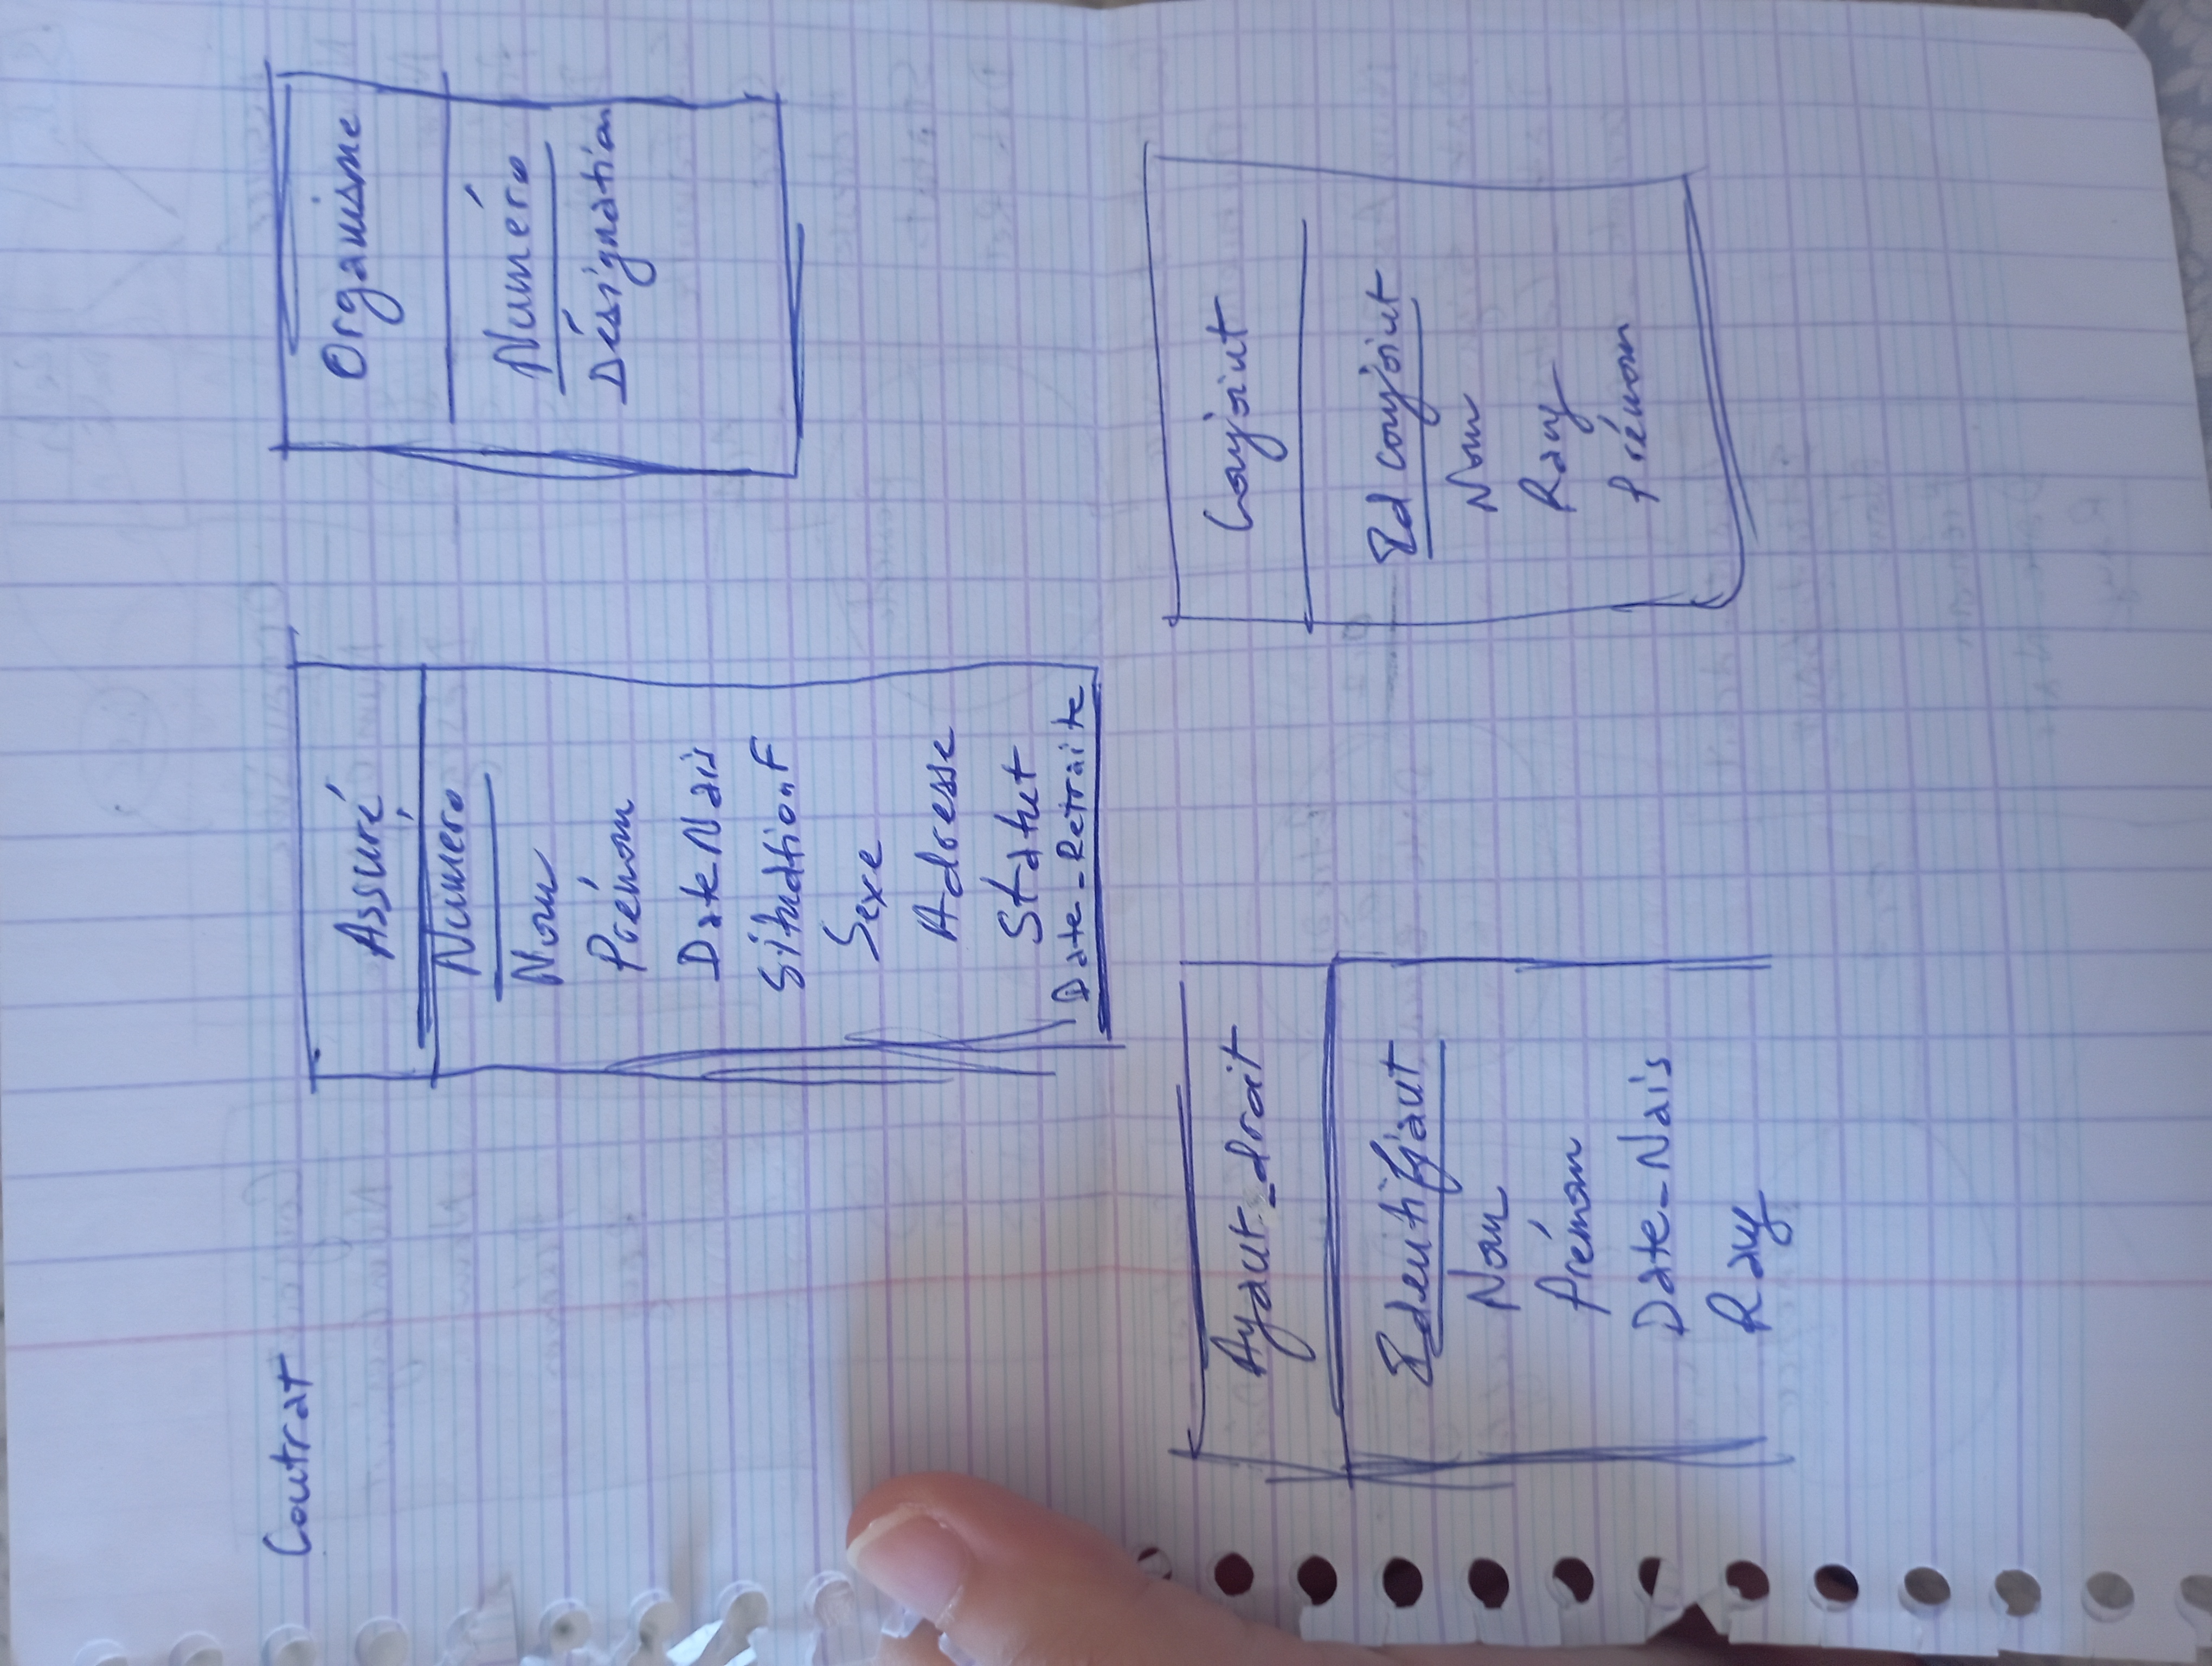 Contrat
Assuré
Numéro
Nom
Prénom
Date Nais
SituationF
Sexe
Adresse
Statut
Date_Retraite
Organisme
Numéro
Désignation
Ayant_droit
Identifiant
Nom
Prénom
Date_Nais
Rang
Conjoint
Id conjoint
Nom
Rang
Prénom